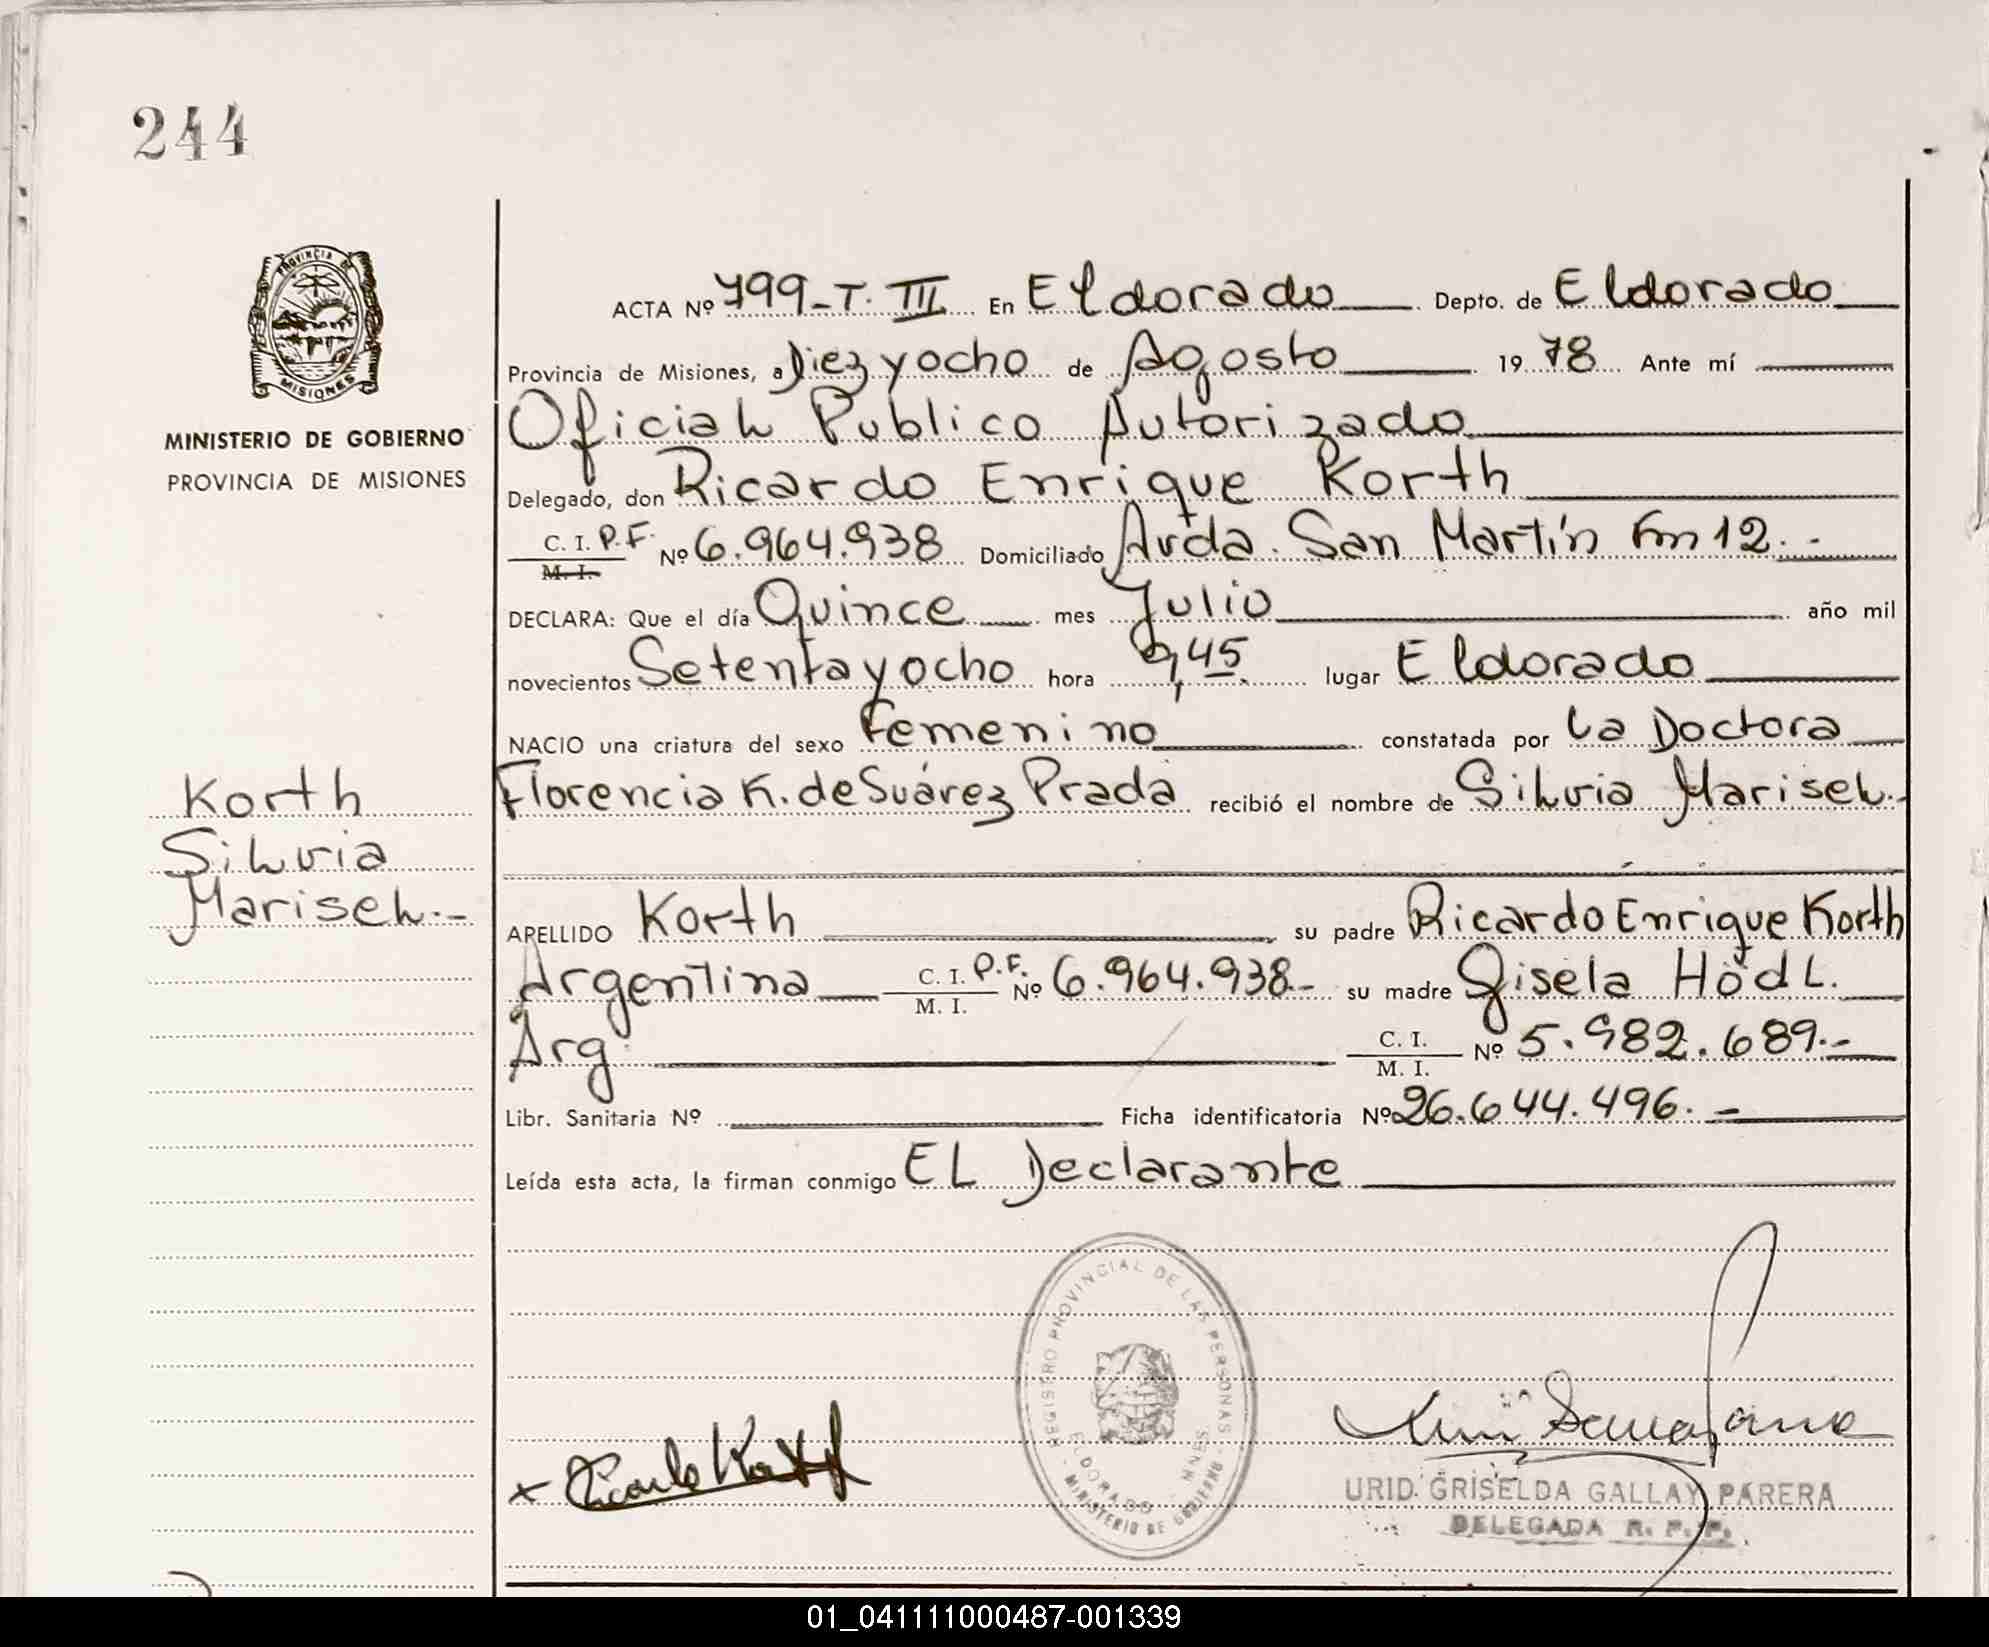 244
PROVINCIA DE
MISIONES
MINISTERIO DE GOBIERNO
PROVINCIA DE MISIONES
ACTA Nº 799-T. III En Eldorado Depto. de Eldorado
Provincia de Misiones, a Diez y ocho de Agosto 1978 Ante mí
Oficial Publico Autorizado
Delegado, don Ricardo Enrique Korth
C. I. P.F. Nº 6.964.938 Domiciliado Avda. San Martín Km 12.-
M. I.
DECLARA: Que el día Quince mes Julio año mil
novecientos Setenta y ocho hora 9,45. lugar Eldorado
NACIO una criatura del sexo Femenino constatada por la Doctora
Florencia K. de Suárez Prada recibió el nombre de Silvia Marisel.-
Korth
Silvia
Marisel.-
APELLIDO Korth su padre Ricardo Enrique Korth
Argentina C. I. P.F. Nº 6.964.938.- su madre Gisela Hödl.
M. I.
Arg. C. I. Nº 5.982.689.-
M. I.
Libr. Sanitaria Nº Ficha identificatoria Nº 26.644.496.-
Leída esta acta, la firman conmigo EL Declarante
REGISTRO PROVINCIAL DE LAS PERSONAS
ELDORADO - MNES.
MINISTERIO DE GOBIERNO
x Ricardo Korth
URID. GRISELDA GALLAY PARERA
DELEGADA R. P. P.
01_041111000487-001339